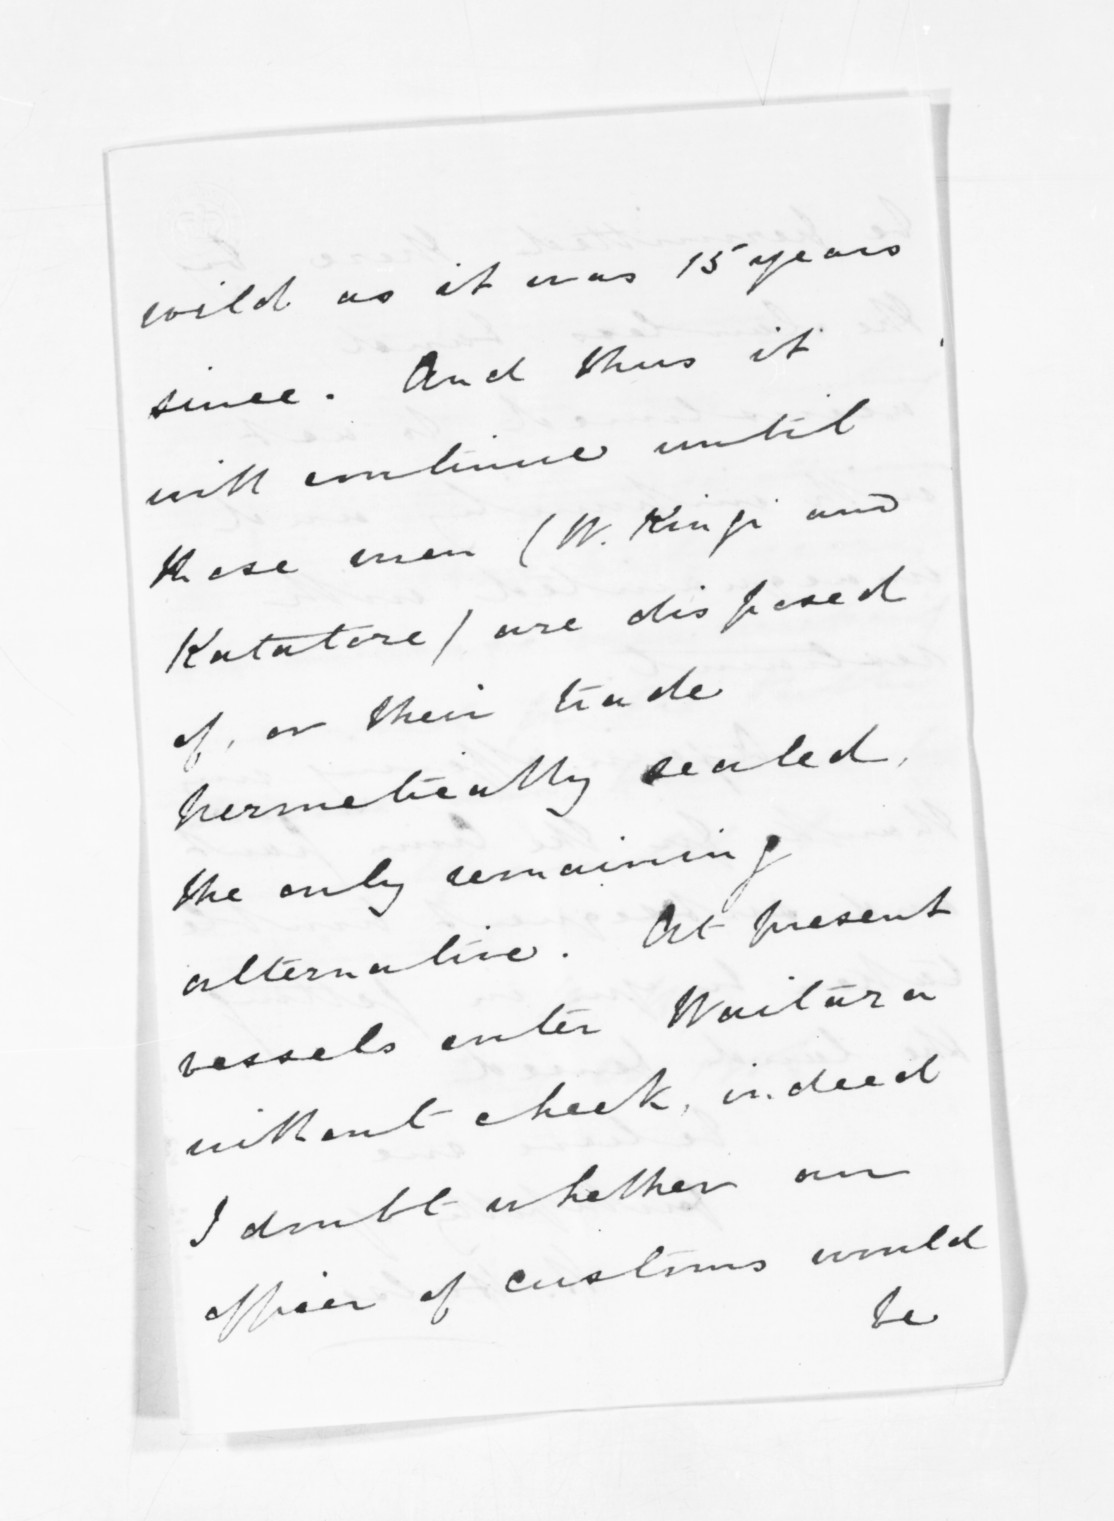 wild as it was 15 years
since. And thus it
will continue until
these men (W. Kingi and
Katatore) are disposed
of, or their trade
hermetically sealed,
the only remaining
alternative. At present
vessels enter Waitara
without check, indeed
I doubt whether an
officer of customs would
be